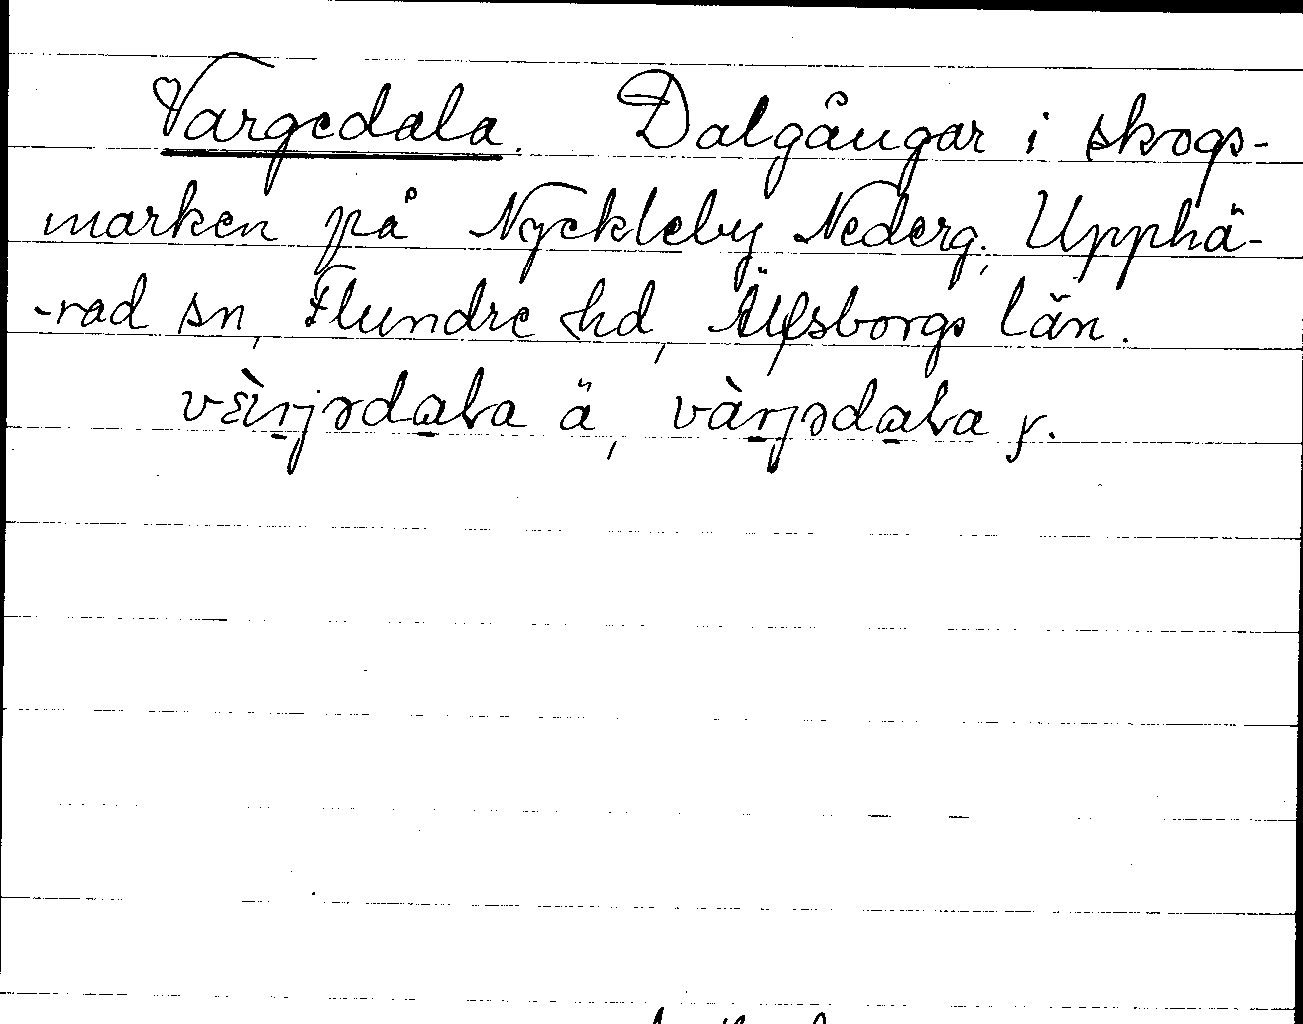 Vargedala. Dalgångar i skogs-
marken på Nyckleby Nederg., Upphä-
-rad sn, Flundre hd, Älfsborgs län.
ä, y.